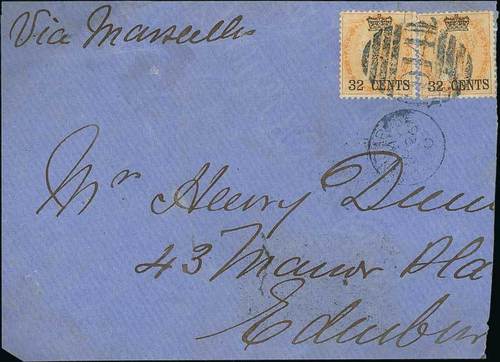 Via Marseilles
32 CENTS 32 CENTS
B 147
Mr Henry Dun
43 Manor Pla
Edinbur